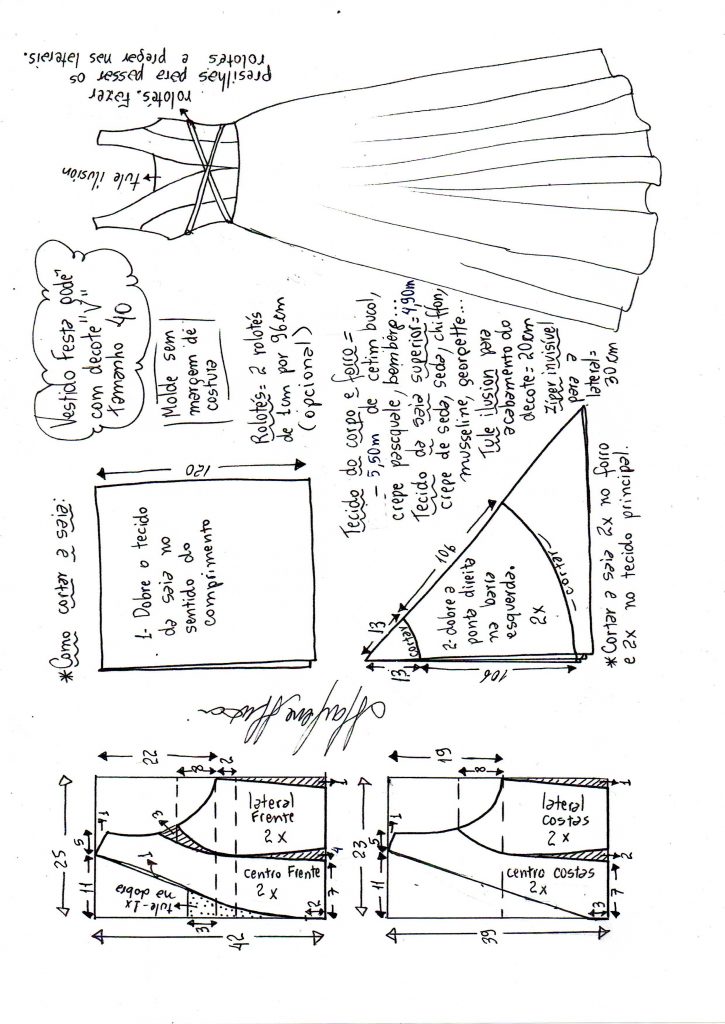 presilhas para passar os
rolotés e pregar nas laterais.
rolotés. Fazer
tule ilusión
Vestido Festa podê
com decote "V"
Tamanho 40
Molde sem
margem de
costura
Rolotés = 2 rolotés
de 1cm por 96cm
(opcional)
Tecido do corpo e forro =
- 5,50m de cetim bucol,
crepe pascquale, bemberg...
Tecido da saia superior = 4,90m
crepe de seda, seda, chiffon,
musseline, georgette...
Tule ilusion para
acabamento do
decote = 20cm
Zíper invisível
para a
lateral =
30cm
*Como cortar a saia:
120
1- Dobre o tecido
da saia no
sentido do
comprimento
13
106
cortar
2- dobre a
ponta direita
na barra
esquerda.
2x
cortar
13
106
*Cortar a saia 2x no forro
e 2x no tecido principal.
25
11
5
1
22
8
2
3
lateral
Frente
2x
1
centro Frente
2x
tule - 1x
na dobra
3
12
2
7
4
1
42
23
11
5
1
19
8
lateral
costas
2x
centro costas
2x
3
7
2
1
39